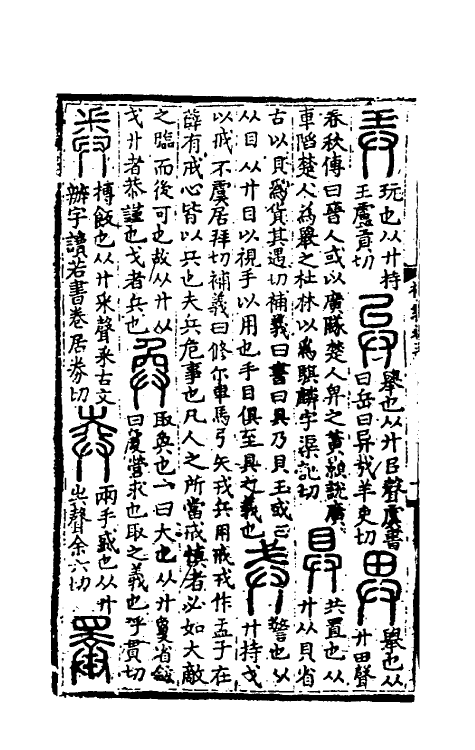 弄玩也从廾持
王盧貢切
异舉也从廾㠯聲虞書
曰岳曰异哉羊吏切
舉也从
廾田聲
春秋傳曰晉人或以廣隊楚人畀之黃顥說廣
車陷楚人為舉之杜林以為騏驎字渠記切
具共置也从
廾从貝省
古以貝為貨其遇切補義曰書曰具乃貝玉或云
从目从廾目以視手以用也手目俱至具之義也
戒警也从
廾持戈
以戒不虞居拜切補義曰修尒車馬弓矢戎兵用戒戎作孟子在
薛有戒心皆以兵也夫兵危事也凡人之所當戒慎者必如大敵
之臨而後可也故从廾从
戈廾者恭謹也戈者兵也
奐取奐也一曰大也从廾敻省鉉
曰敻營求也取之義也呼貫切
摶飯也从廾釆聲釆古文
辦字讀若書卷居券切
兩手盛也从廾
圥聲余六切